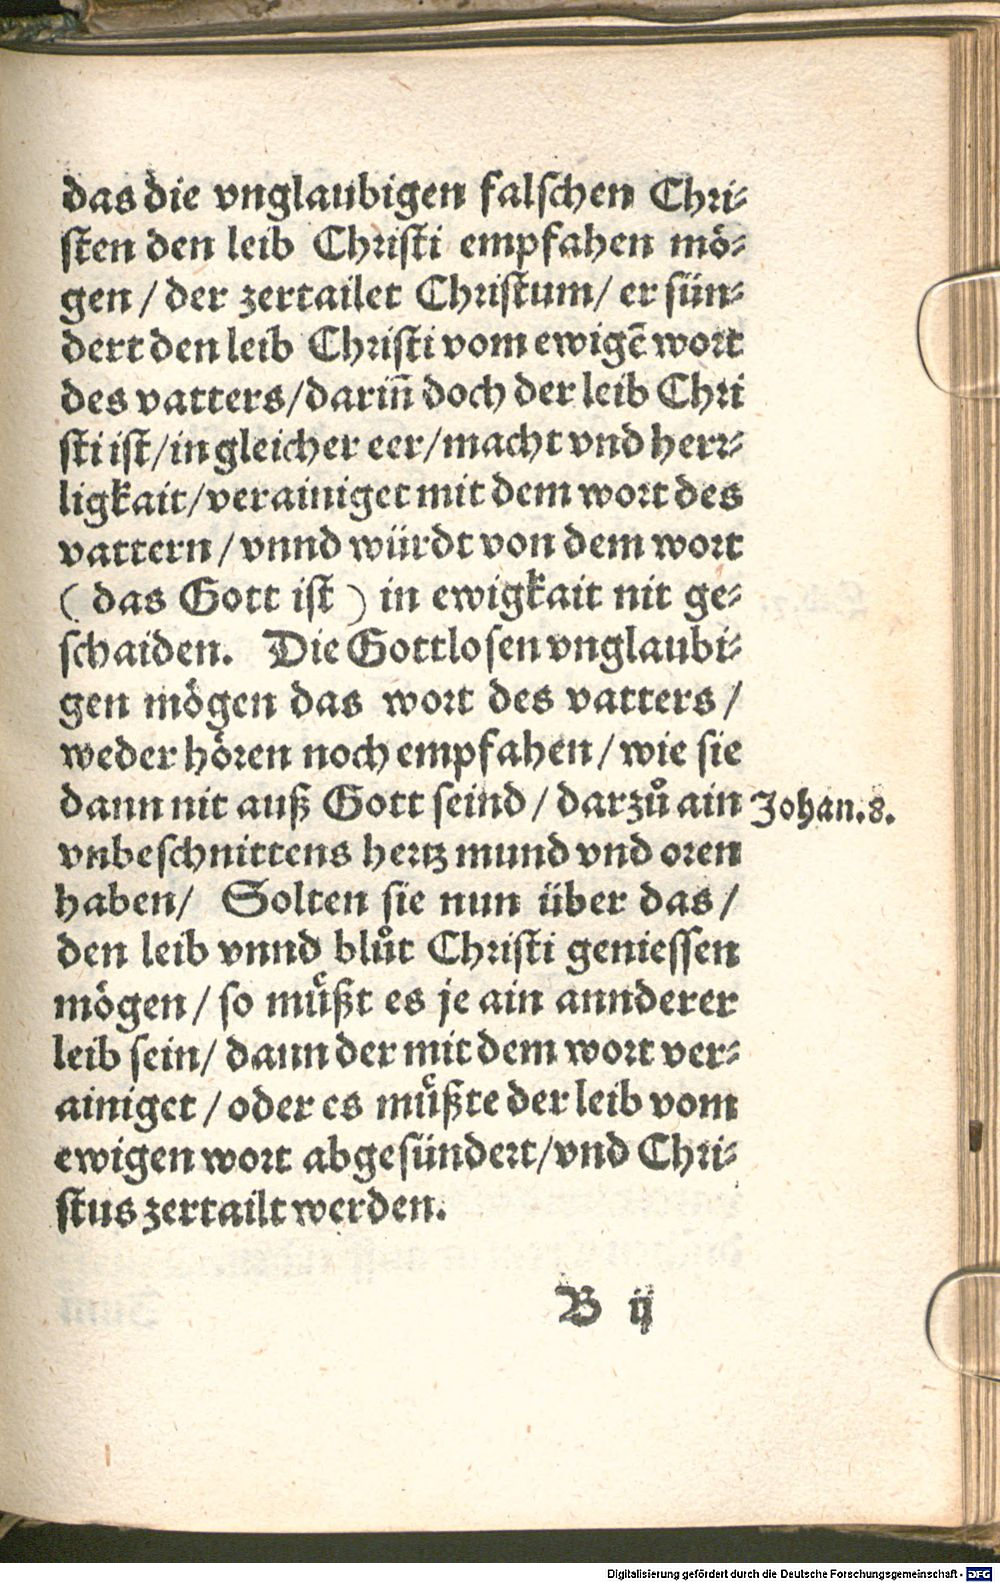 das die vnglaubigen falschen Chri-
sten den leib Christi empfahen mö-
gen / der zertailet Christum / er sün-
dert den leib Christi vom ewigē wort
des vatters / dariñ doch der leib Chri
sti ist / in gleicher eer / macht vnd herr-
ligkait / verainiget mit dem wort des
vattern / vnnd würdt von dem wort
( das Gott ist ) in ewigkait nit ge-
schaiden. Die Gottlosen vnglaubi-
gen mögen das wort des vatters /
weder hören noch empfahen / wie sie
dann nit auß Gott seind / darzů ain Johan.8.
vnbeschnittens hertz mund vnd oren
haben / Solten sie nun über das /
den leib vnnd blůt Christi geniessen
mögen / so müßt es je ain annderer
leib sein / dann der mit dem wort ver-
ainiget / oder es müßte der leib vom
ewigen wort abgesündert / vnd Chri-
stus zertailt werden.
B ij
Digitalisierung gefördert durch die Deutsche Forschungsgemeinschaft - DFG